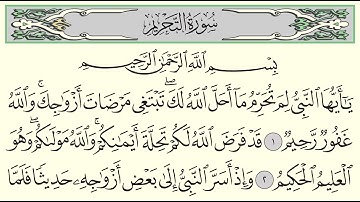 سُورَةُ التَّحْرِيمِ
بِسْمِ اللَّهِ الرَّحْمَٰنِ الرَّحِيمِ
يَٰٓأَيُّهَا النَّبِيُّ لِمَ تُحَرِّمُ مَآ أَحَلَّ اللَّهُ لَكَ تَبْتَغِى مَرْضَاتَ أَزْوَٰجِكَ ۚ وَاللَّهُ
غَفُورٌ رَّحِيمٌ ١ قَدْ فَرَضَ اللَّهُ لَكُمْ تَحِلَّةَ أَيْمَٰنِكُمْ ۚ وَاللَّهُ مَوْلَىٰكُمْ ۖ وَهُوَ
الْعَلِيمُ الْحَكِيمُ ٢ وَإِذْ أَسَرَّ النَّبِيُّ إِلَىٰ بَعْضِ أَزْوَٰجِهِۦ حَدِيثًا فَلَمَّا